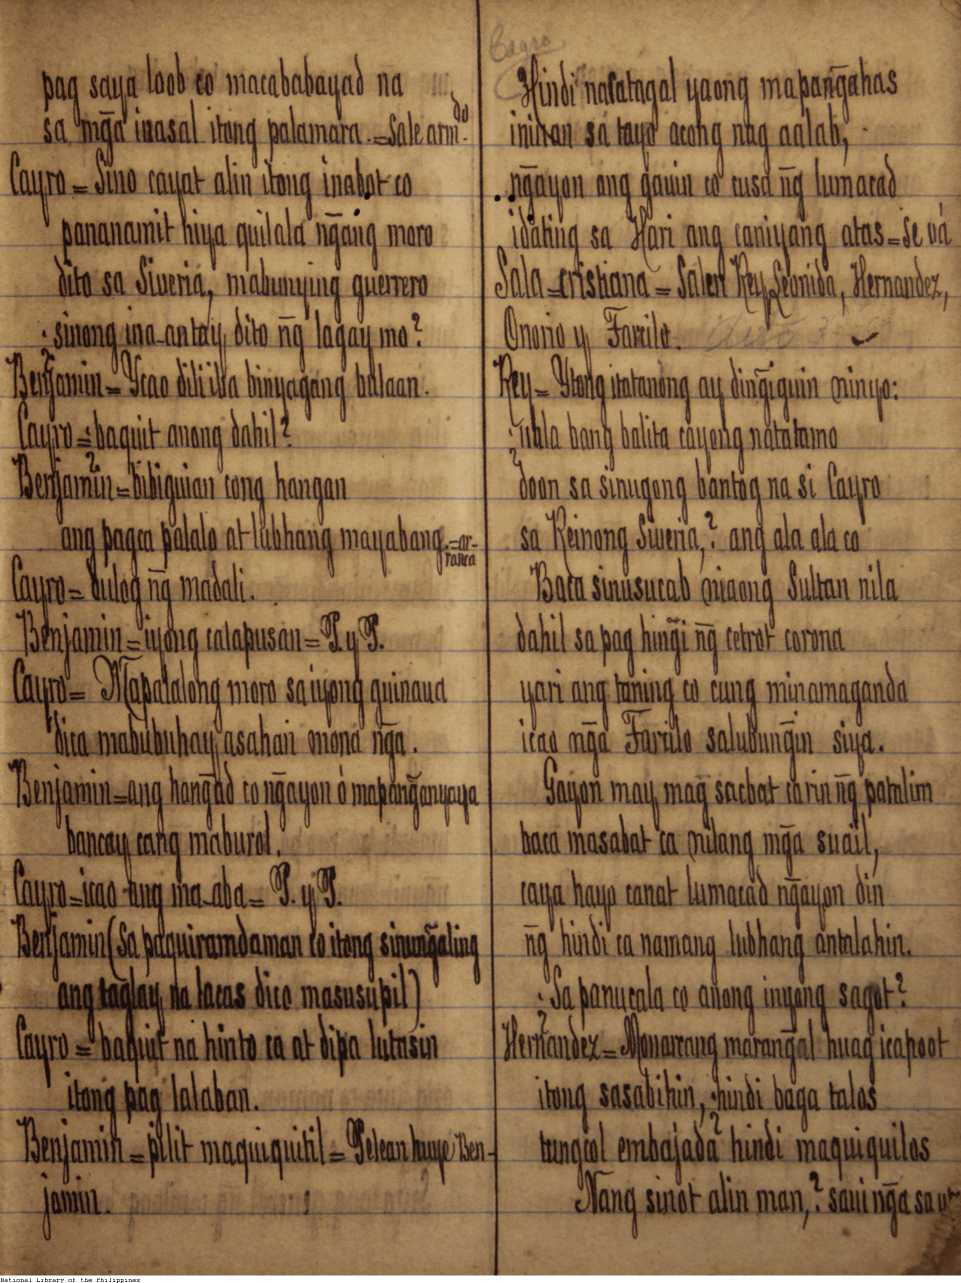 pag saya loob co macababayad na
sa mg̃a inasal itong palamara. = Sale arm.do
Cayro = Sino cayat alin itong inabot co
pananamit niya quilala ng̃ang moro
dito sa Siveria, mabunying guerrero
¿sinong ina-antay dito ñg lagay mo?
Benjamin = Ycao dili iba binyagang bulaan.
Cayro = ¿baquit anong dahil?
Benjamin = bibiguian cong hangan
ang pagca palalo at lubhang mayabang. = ar-
ranca
Cayro = bulog ñg madali.
Benjamin = iyong catapusan = P. y P.
Cayro = Mapalalong moro sa iyong guinaua
dica mabubuhay asahan mona ñga.
Benjamin = ang hang̃ad co ng̃ayon ó mapang̃anyaya
bancay cang maburol.
Cayro = icao ang ma-aba = P. y P.
Benjamin (Sa paquiramdaman co itong sinung̃aling
ang taglay na lacas dico masusupil)
Cayro = baquit na hinto ca at dipa lutasin
itong pag lalaban.
Benjamin = pilit maquiquitil = Pelean huye Ben-
jamin.
Cayro
Hindi nacatagal yaong mapang̃ahas
ininan sa tayo acong nag aalab,
ng̃ayon ang gauin co cusa ñg lumacad
idating sa Hari ang caniyang atas = Se vá
Sala cristiana = Salen Rey Leonida, Hernandez,
Onorio y Farilo.
Rey = Ytong itatanong ay ding̃iguin ninyo:
¿uala bang balita cayong natatamo
doon sa sinugong bantog na si Cayro
sa Reinong Siveria,? ang ala ala co
Baca sinusucab niaong Sultan nila
dahil sa pag hing̃i ñg cetrot corona
yari ang tuning co cung minamaganda
icao ng̃a Farilo salubung̃in siya.
Gayon may mag sacbat carin ñg patalim
baca masabat ca nilang mg̃a suail,
caya hayo canat lumacad ng̃ayon din
ñg hindi ca namang lubhang antalahin.
¿Sa panucala co anong inyong sagot?
Hernandez = Monarcang marang̃al huag icapoot
itong sasabihin, ¿hindi baga talos
tungcol embajada hindi maquiquilos
Nang sinot alin man,? saui ng̃a sa